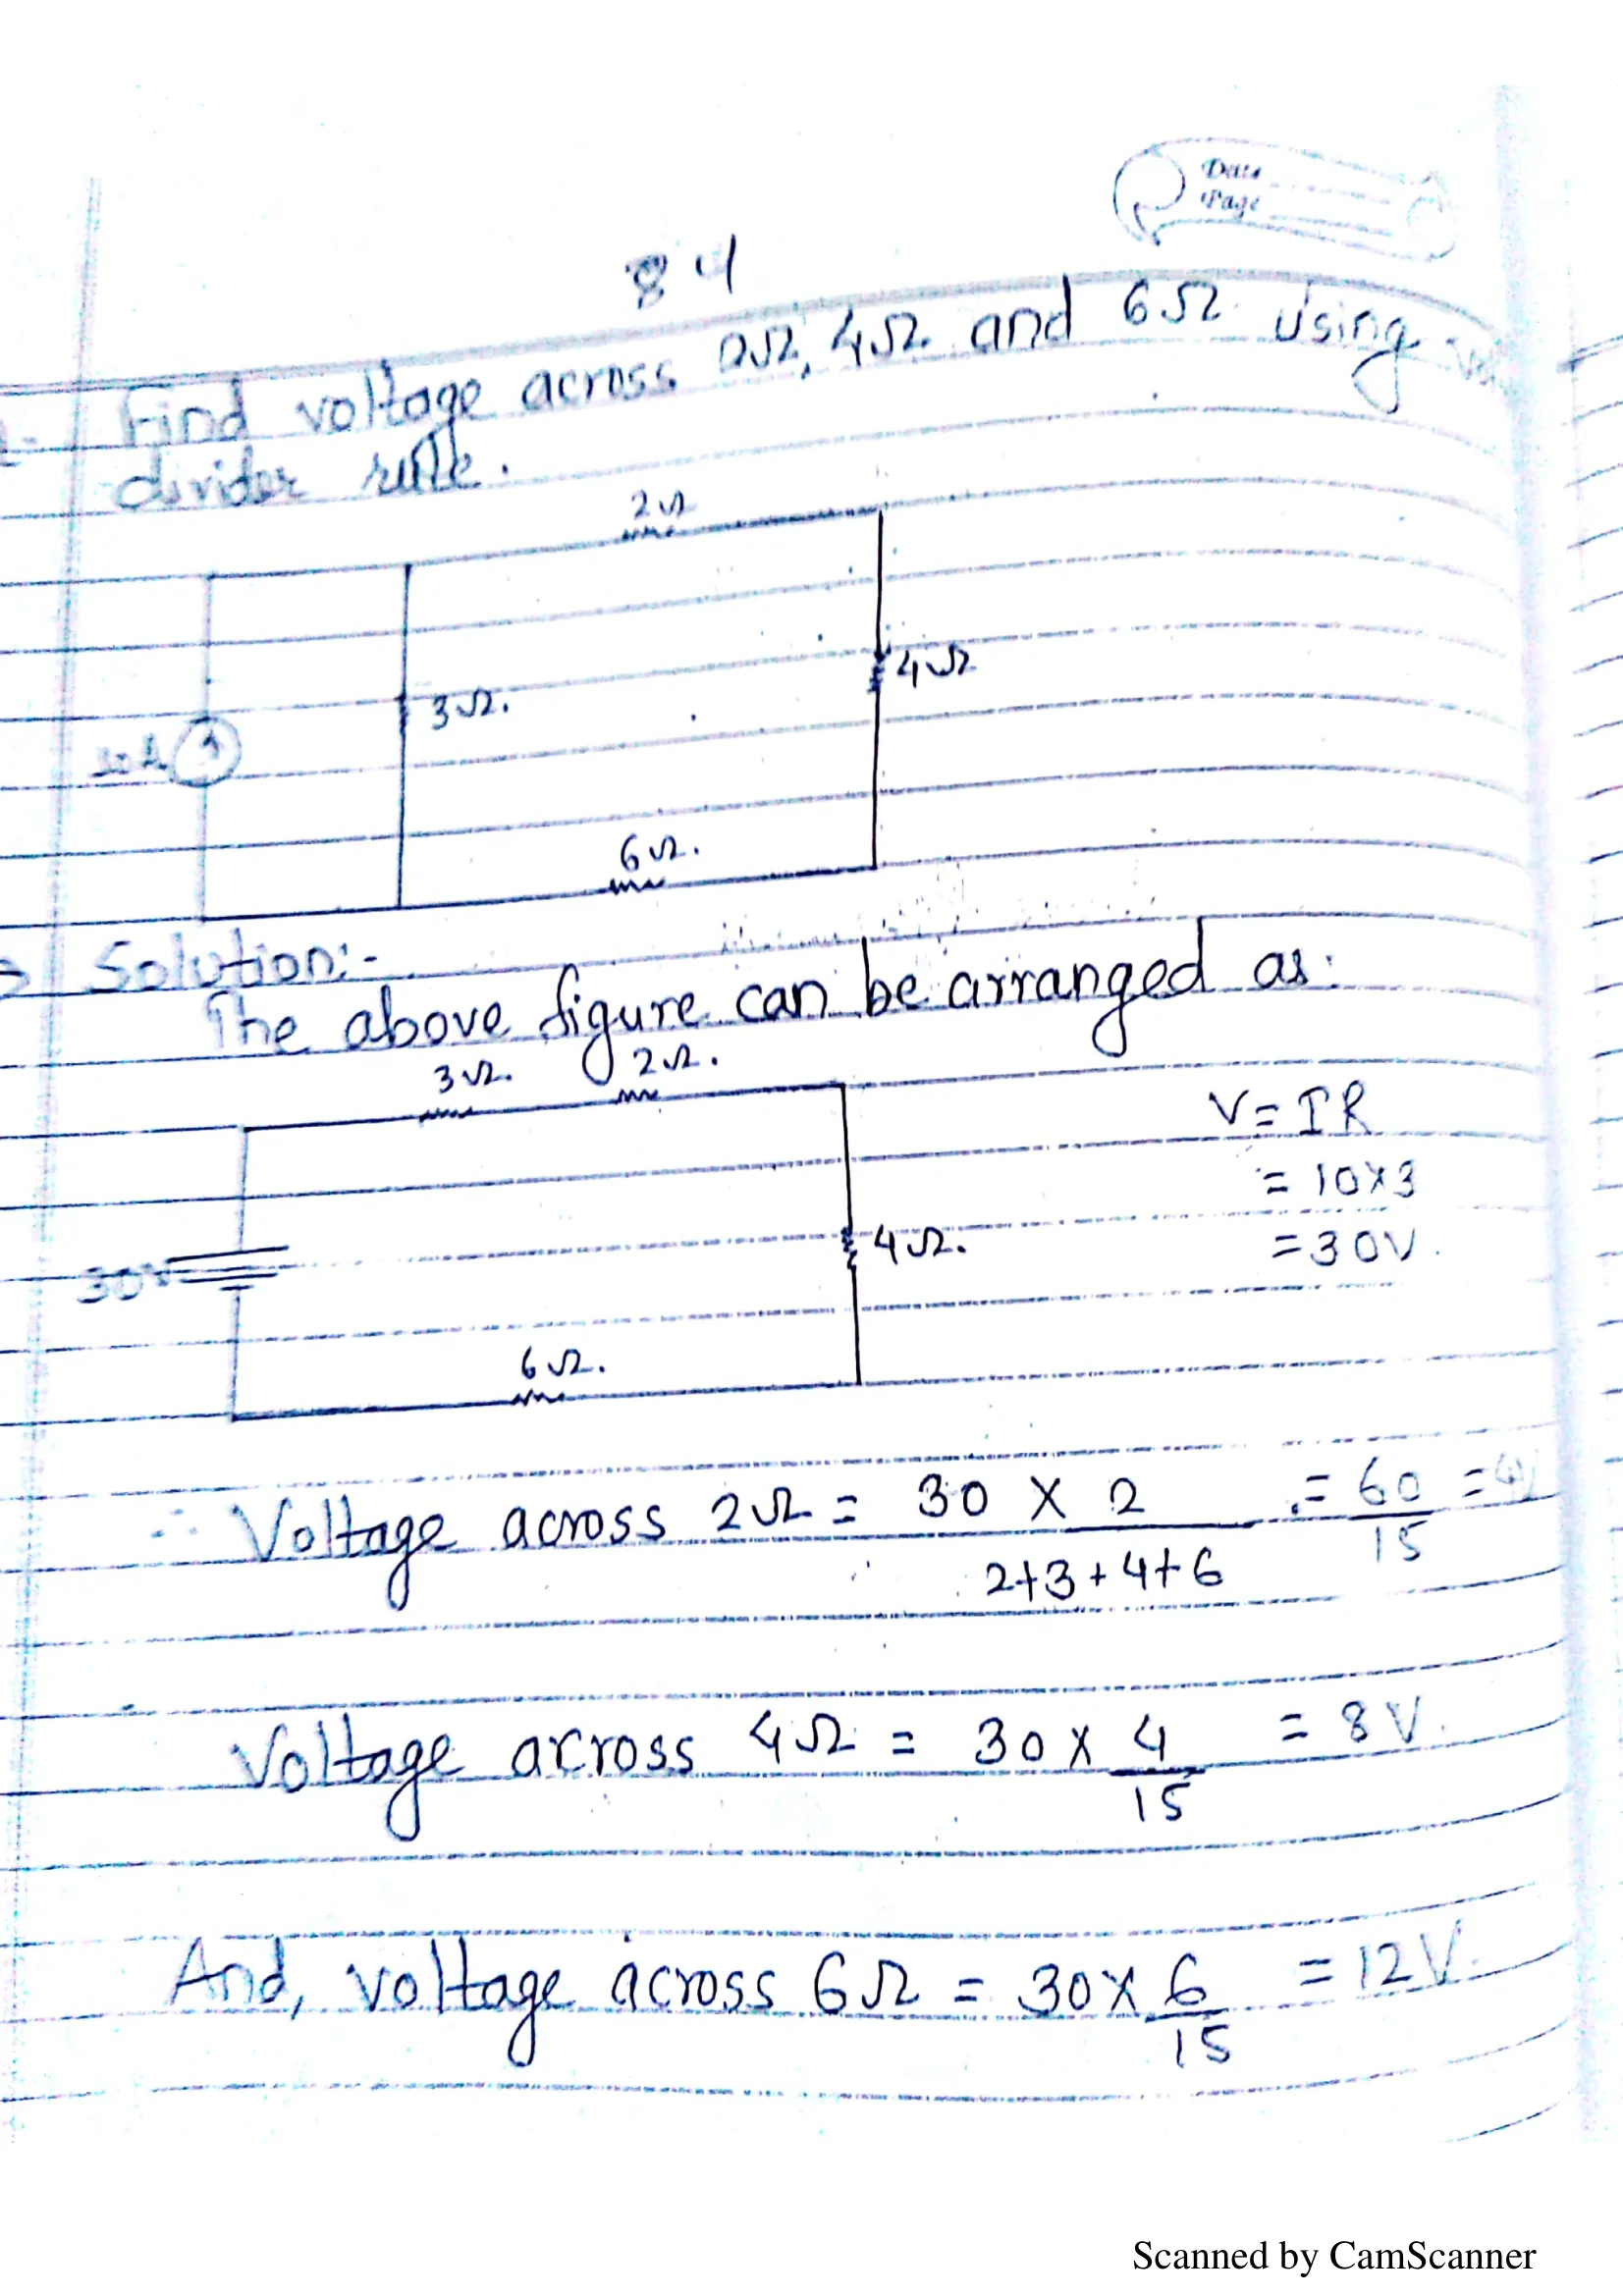 Date
Page
84
Find voltage across 2Ω, 4Ω and 6Ω Using
divider rule.
2Ω
4Ω
3Ω.
10A
6Ω.
Solution:-
The above figure can be arranged as:
3Ω. 2Ω.
V = IR
= 10×3
= 30V.
4Ω.
30V
6Ω.
∴ Voltage across 2Ω = 30 × 2 / 2+3+4+6 = 60/15 = 4V
Voltage across 4Ω = 30 × 4/15 = 8V.
And, voltage across 6Ω = 30 × 6/15 = 12V.
Scanned by CamScanner